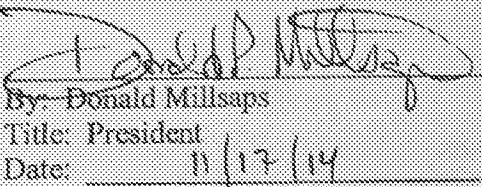 Donald Millsaps
By: Donald Millsaps
Title: President
Date: 11/17/14